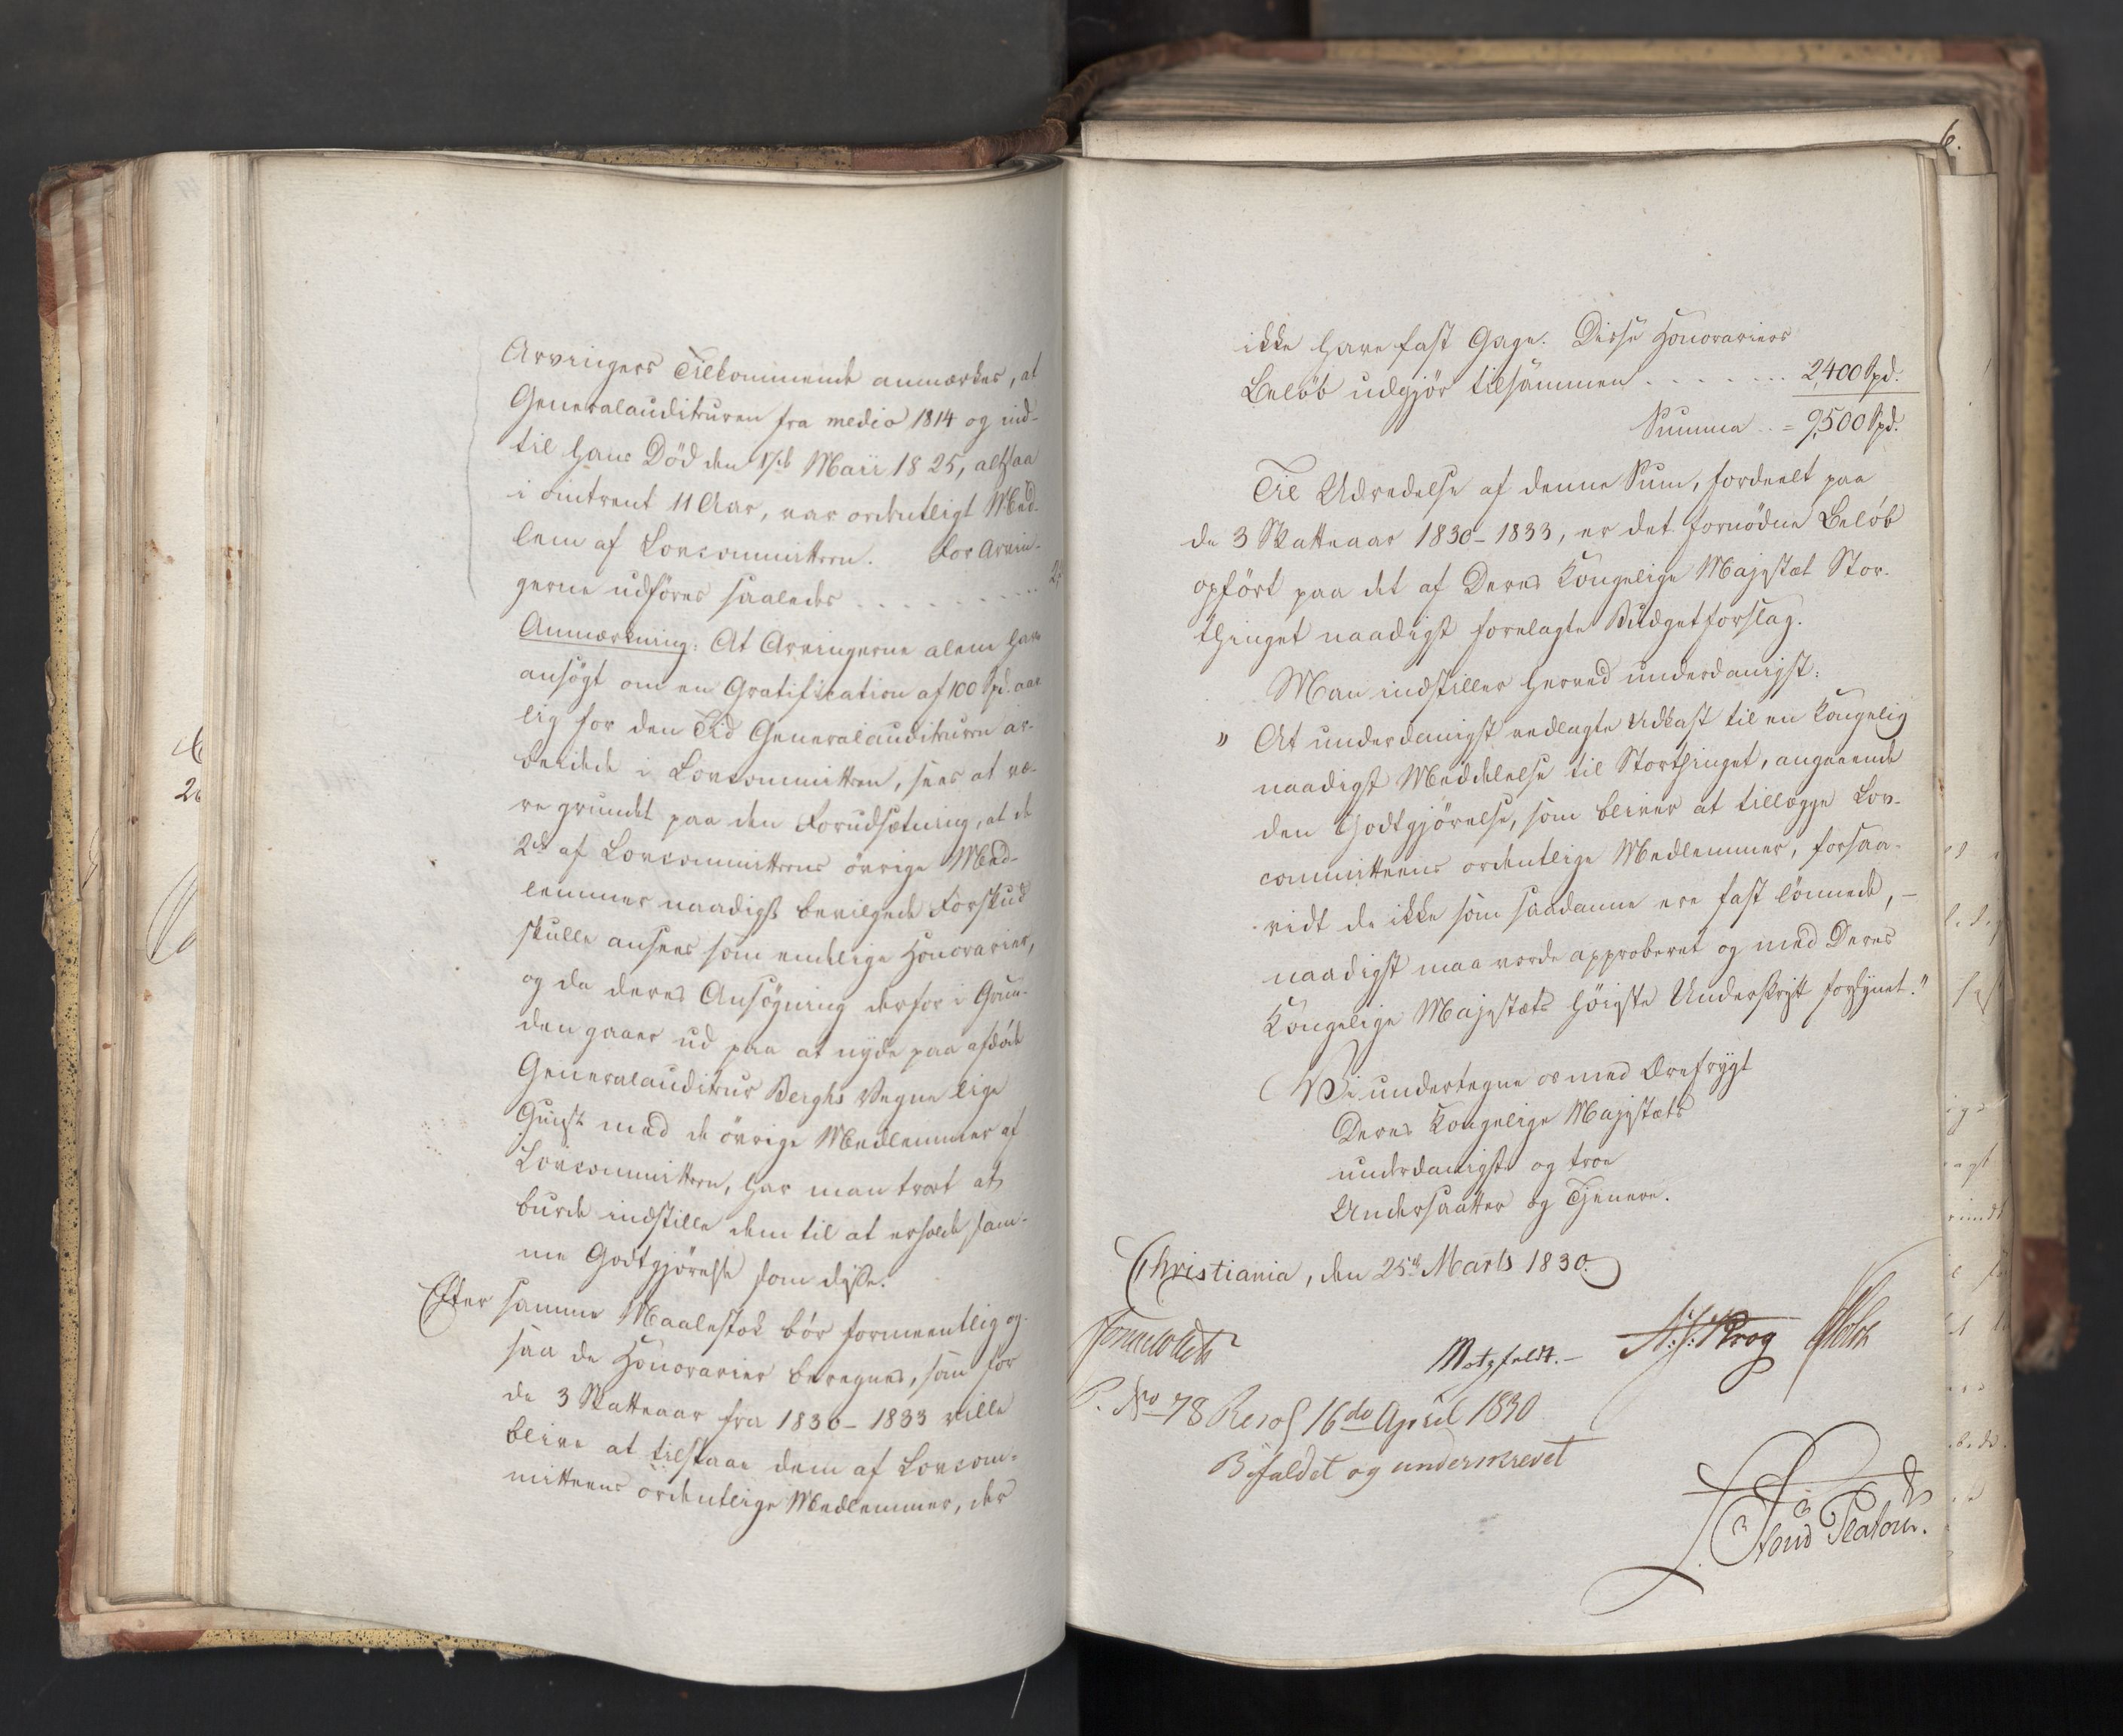 Arvingers Tilkommende anmærkes, at
Generalauditeuren fra medio 1814 og ind-
til hans Död den Maii 1825, altsaa
i omtrent 11 Aar, var ordentligt Med-
lem af Lovcommitteen. For Arvin-
gerne udföres saaledes . . . . . . . . .
Anmærkning: At Arvingerne alene have
ansögt om en Gratification af 100 Spd. aar-
lig for den Tid Generalauditeuren ar-
beidede i Lovcommitteen, sees at væ-
re grundet paa den Forudsætning, at de
2de af Lovcommitteens övrige Med-
lemmer naadigst bevilgede Forskud
skulle ansees som endelige Honorarier,
og da deres Ansögning derfor i Grun-
den gaaer ud paa at nyde paa afdöde
Generalauditeur Berghs Vegne lige
Gunst med de övrige Medlemmer af
Lovcommitteen, har man troet at
burde indstille dem til at erholde sam-
me Godtgjörelse som disse.
Efter samme Maalestok bör formeentlig og-
saa de Honorarier beregnes, som for
de 3 Skatteaar fra 1830-1833 ville
blive at tilstaae dem af Lovcom-
mitteens ordentlige Medlemmer, der
6.
ikke have fast Gage. Disse Honorariers
Belöb udgjör tilsammen . . . . . . . 2,400 Spd.
Summa . . = 9,500 Spd.
Til Udredelse af denne Sum, fordeelt paa
de 3 Skatteaar 1830-1833, er det fornödne Belöb
opfört paa det af Deres Kongelige Majestæt Stor-
thinget naadigst forelagte Budgetforslag.
Man indstiller herved underdanigst:
" At underdanigst vedlagte Udkast til en Kongelig
naadigst Meddelelse til Storthinget, angaaende
den Godtgjörelse, som bliver at tillægge Lov-
committeens ordentlige Medlemmer, forsaa-
vidt de ikke som saadanne ere fast lönnede, -
naadigst maa vorde approberet og med Deres
Kongelige Majestæts höieste Underskrift forsynet."
Vi undertegne os med Ærefrygt
Deres Kongelige Majestæts
underdanigste og troe
Undersaatter og Tjenere.
Christiania, den 25de Marts 1830.
Motzfeldt.- Krog Holst
P. No 78 Resol 16de April 1830
Bifaldet og underskrevet